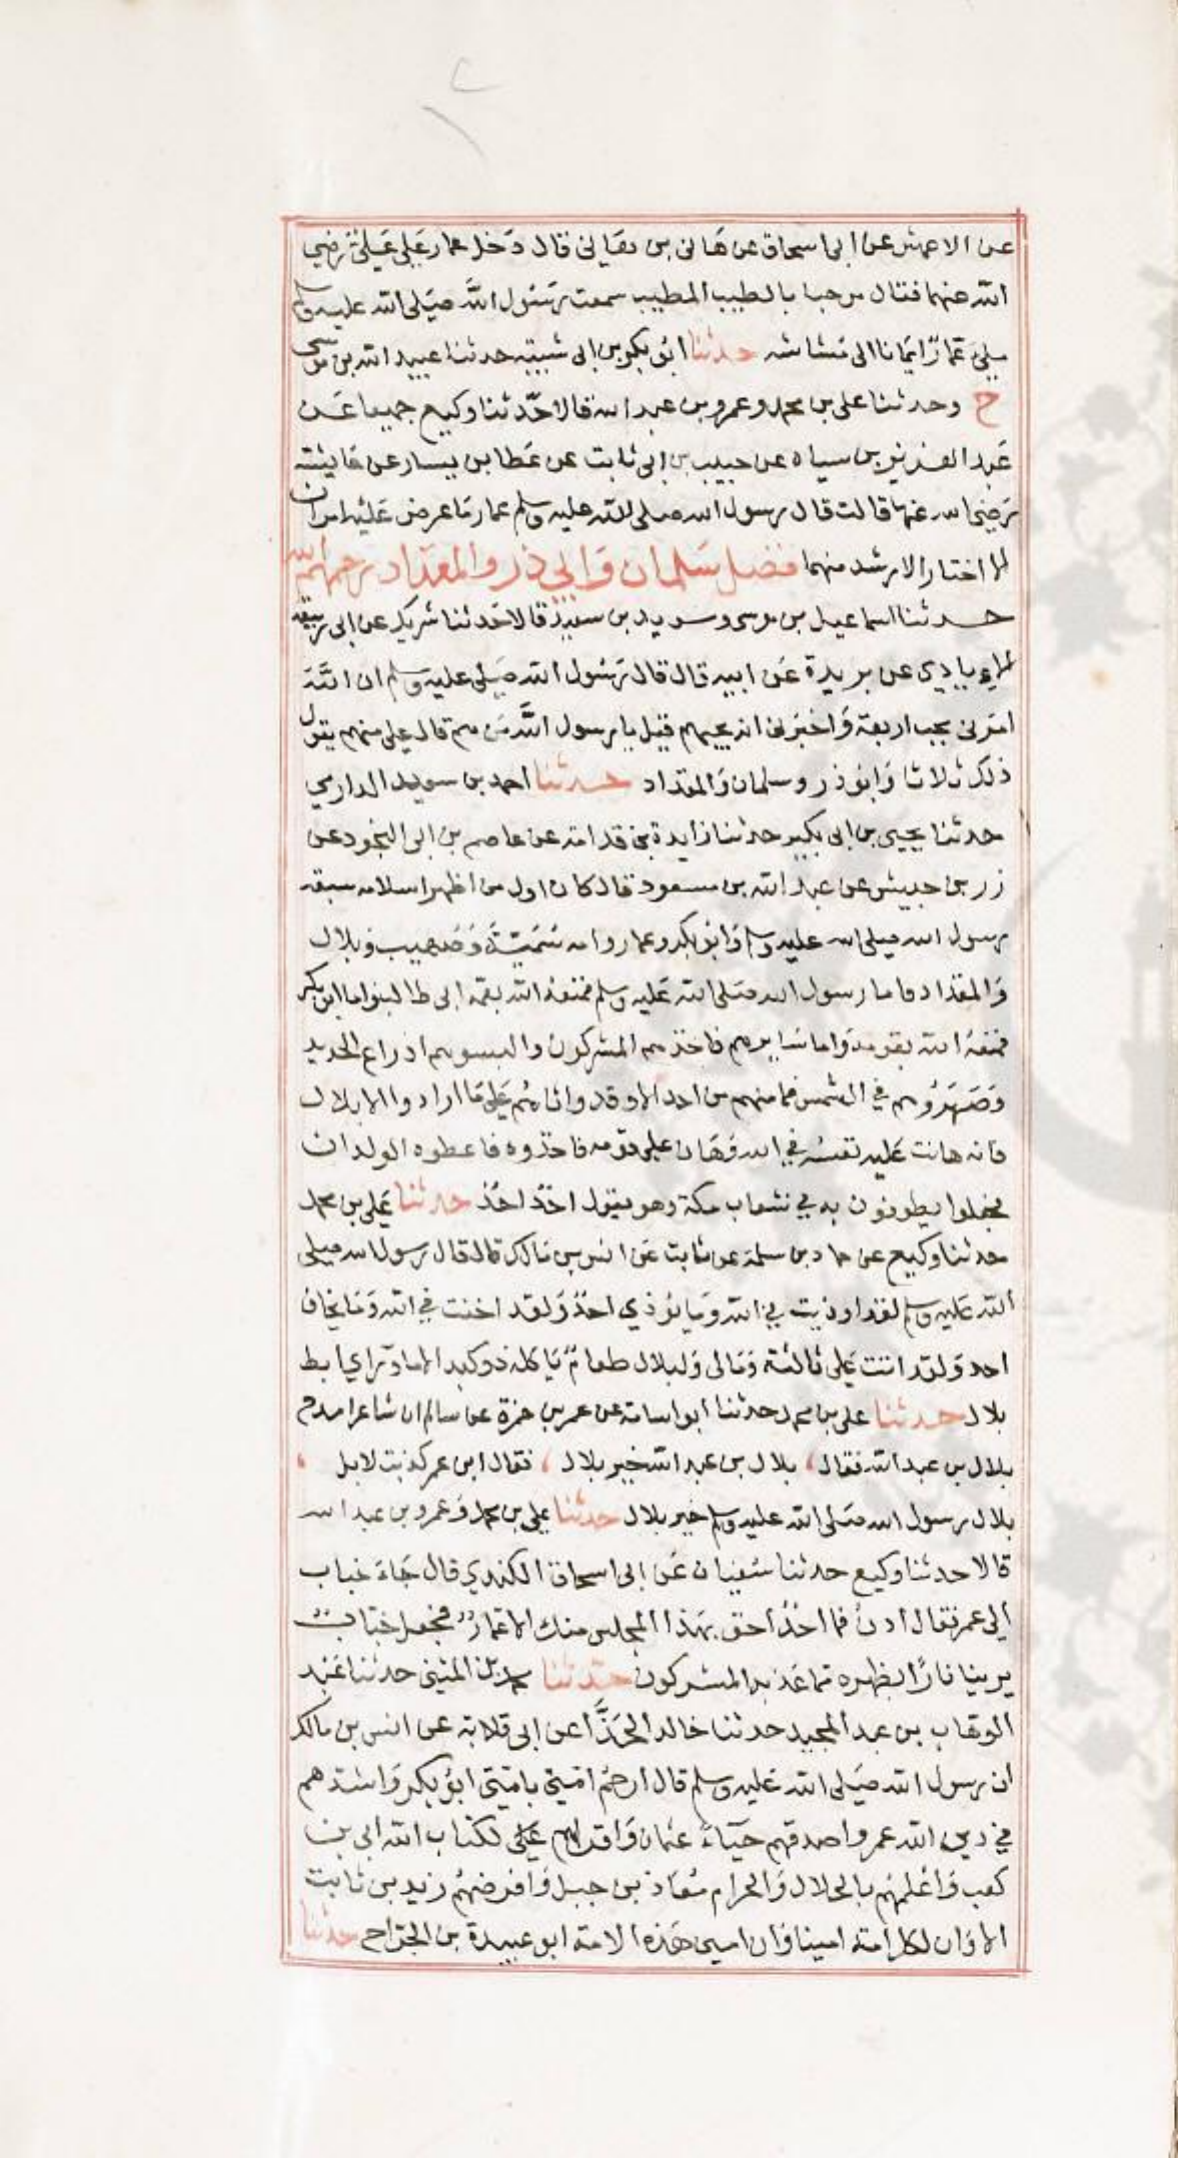 عن الاعمش عن ابى اسحاق عن هَانى بن هَانى قال دَخل عمار عَلى عَلىّ رَضي
الله عنهما فقال مرحبا بالطيب المطيب سمعت رَسُول اللَّه صَلى الله عليه وسلم
ملئ عَمارٌ ايمَانا الى مُشاشه حدثنا ابُو بكر بن ابى شيبة حدثنا عبيد الله بن موسى
ح وحدثنا على بن محمد وعمرو بن عبد الله قالا حَدّثنا وكيع جميعا عَن
عَبد العزيز بن سياه عن حبيب بن ابى ثابت عن عَطا بن يسار عن عَايشة
رَضي الله عنها قالت قال رسول الله صلى الله عليه وسلم عمار مَا عرض عَليه امران
الا اختار الارشد منهما فضل سَلمان وَابي ذر والمقداد رحمهم الله
حدثنا اسماعيل بن موسى وسويد بن سعيد قالا حَدثنا شريك عن ابى ربيعة
الايادي عن بريدة عَن ابيه قال قال رَسُول الله صَلى عليه وسلم ان اللَّه
امرَنى بحب اربعة وَاخبَرنى انه يحبهم قيل يا رسول اللَّه مَن هم قال على منهم يقول
ذلك ثلاثا وَابُو ذر وسلمان وَالمقداد حدثنا احمد بن سويد الدارمي
حدثنا يحيى بن ابى بكير حدثنا زايدة بن قدامة عن عاصم بن ابى النجود عن
زر بن حبيش عن عبد الله بن مسعود قال كان اول من اظهر اسلامه سبعة
رسول الله صلى الله عليه وسلم وَابُو بكر وعمار وامه سُمَيّةُ وَصُهيب وبلال
وَالمقداد فاما رسول الله صَلى الله عَليه وسلم فمنعهُ الله بعمه ابى طالب واما ابو بكر
فمنعهُ الله بقومه وَاما سَايرهم فاخذهم المشركون والبسوهم ادراع الحديد
وَصَهَرُوهم في الشمس فما منهم من احد الا وقد واتاهُم عَلى مَا ارادوا الا بلال
فانه هانت عَليه نفسُه في الله وَهَان على قومه فاخذوه فاعطوه الولدان
فجعلوا يطوفون به في شعاب مكة وهو يقول احَدُ احَدُ حدثنا عَلى بن محمد
حدثنا وكيع عن حماد بن سلمة عن ثابت عَن انس بن مَالك قال قال رسول الله صلى
الله عَليه وسلم لقد اوذيت في الله وَمَا يُوذي احَدُ وَلقد اخفت في الله وَمَا يخاف
احد وَلقد اتت عَلى ثالثة وَمَالى وَلبلال طعامٌ يَاكله ذو كبد الا ما وَاراي ابط
بلال حدثنا على بن محمد حدثنا ابو اسامة عن عمر بن حمزة عن سالم ان شاعرا مدح
بلال بن عبد الله فقال، بلال بن عبد الله خير بلال، فقال ابن عمر كذبت لا بل،
بلال رسول الله صَلى الله عليه وسلم خير بلال حدثنا على بن محمد وَعمرو بن عبد الله
قالا حدثنا وكيع حدثنا سُفيان عَن ابى اسحاق الكندي قال جَاءَ خباب
الى عمر فقال ادنُ فما احَدُ احق بهَذا المجلس منك الا عَمارُ فجعل خبّاب
يرينا اثارًا بظهره مما عَذبه المشركون حدثنا محمد بن المثنى حدثنا عَبد
الوهاب بن عبد المجيد حدثنا خالد الحَذَّا عن ابى قلابة عن انس بن مالك
ان رسول الله صَلى الله عَليه وسلم قال ارحَم امتى بامتى ابُو بكر وَاشدهم
في دين الله عمر واصدقهم حيَاءً عثمان وَاقراهم عَلى لكتاب الله ابى بن
كعب وَاعْلمهُم بالحلال وَالحرام مُعَاذ بن جبل وَافرضهُم زيد بن ثابت
الا وَان لكل امة امينا وَان امين هَذه الامة ابو عبيدة بن الجرّاح حدثنا